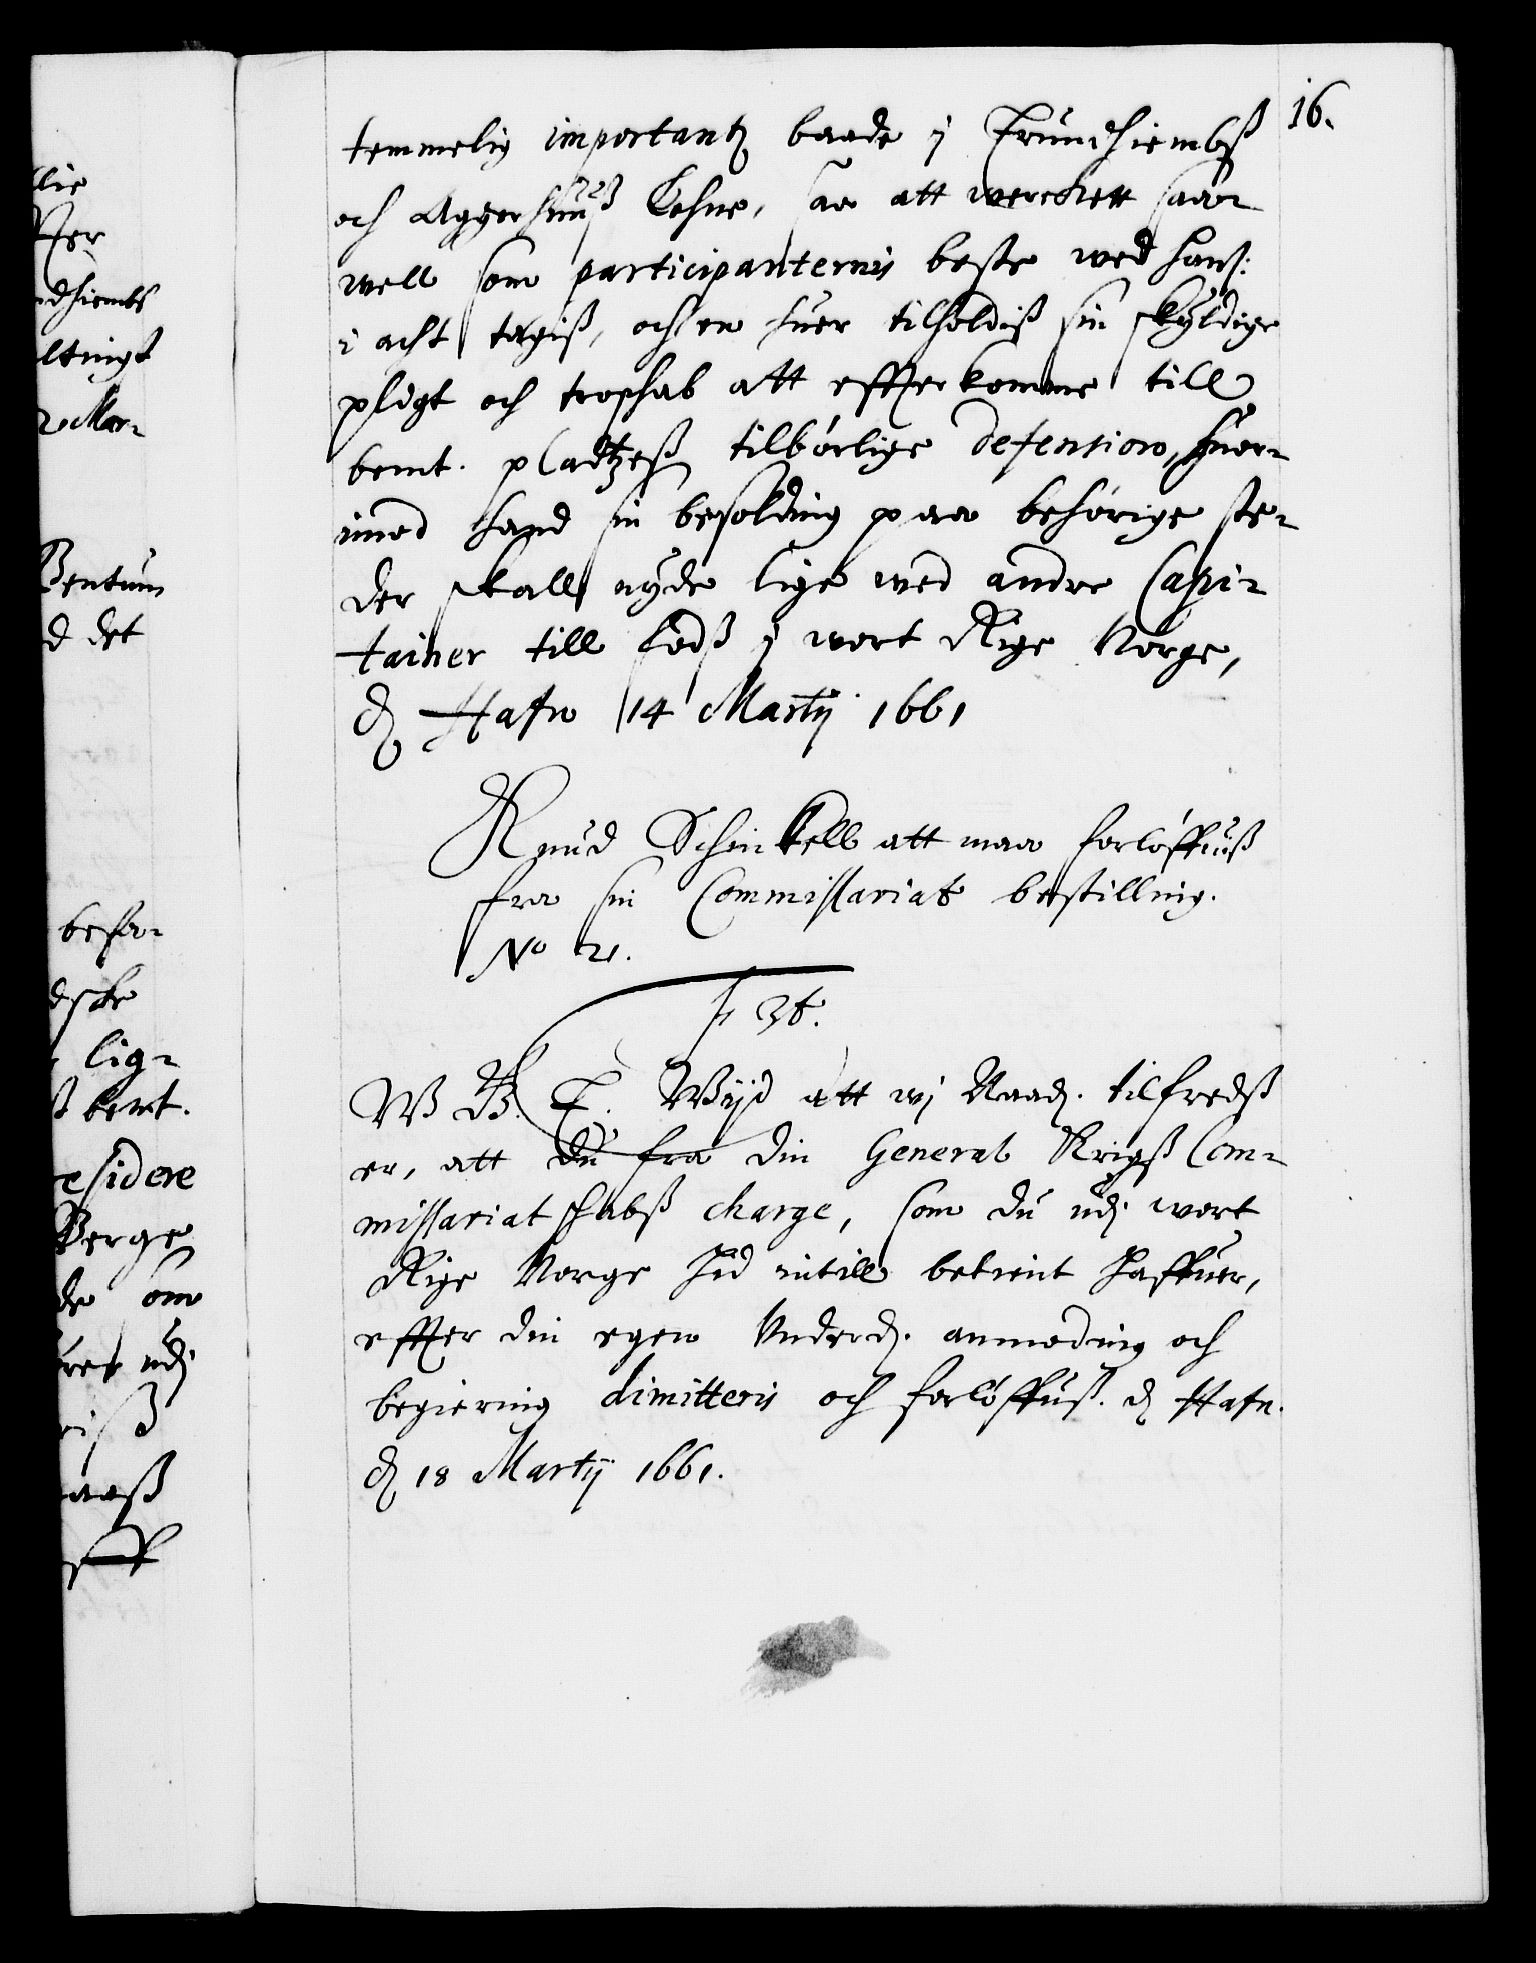 16.
temmelig importantz baade j Trundhiembß
och Aggershuuß Lehne, saa att werckett saa-
well som participanternis beste wed hanß:
i acht tagiß, och en huer tilholdiß sin skyldige
pligt och troschab att effterkomme till
bemt. pladtzeß tilbørlige defension, huor-
imod hand sin besolding paa behørige ste-
der skall nyde lige wed andre Capi-
tainer till fodß j wort Rige Norge,
Hafn 14 Martij 1661
Knud Schinkell att maa forløffuiß
fra sin Commissariat bestilling.
No 2.
F 3t.
W B. T. Wijd att wj Naad. tilfredß
er, att du fra din General Krigß Com-
missariatschabß charge, som du udj wort
Rige Norge hid intill betient haffuer,
effter din egen Underd. anmoding och
begiering dimitteris och forløffuiß. Hafn.
d 18 Martij 1661.